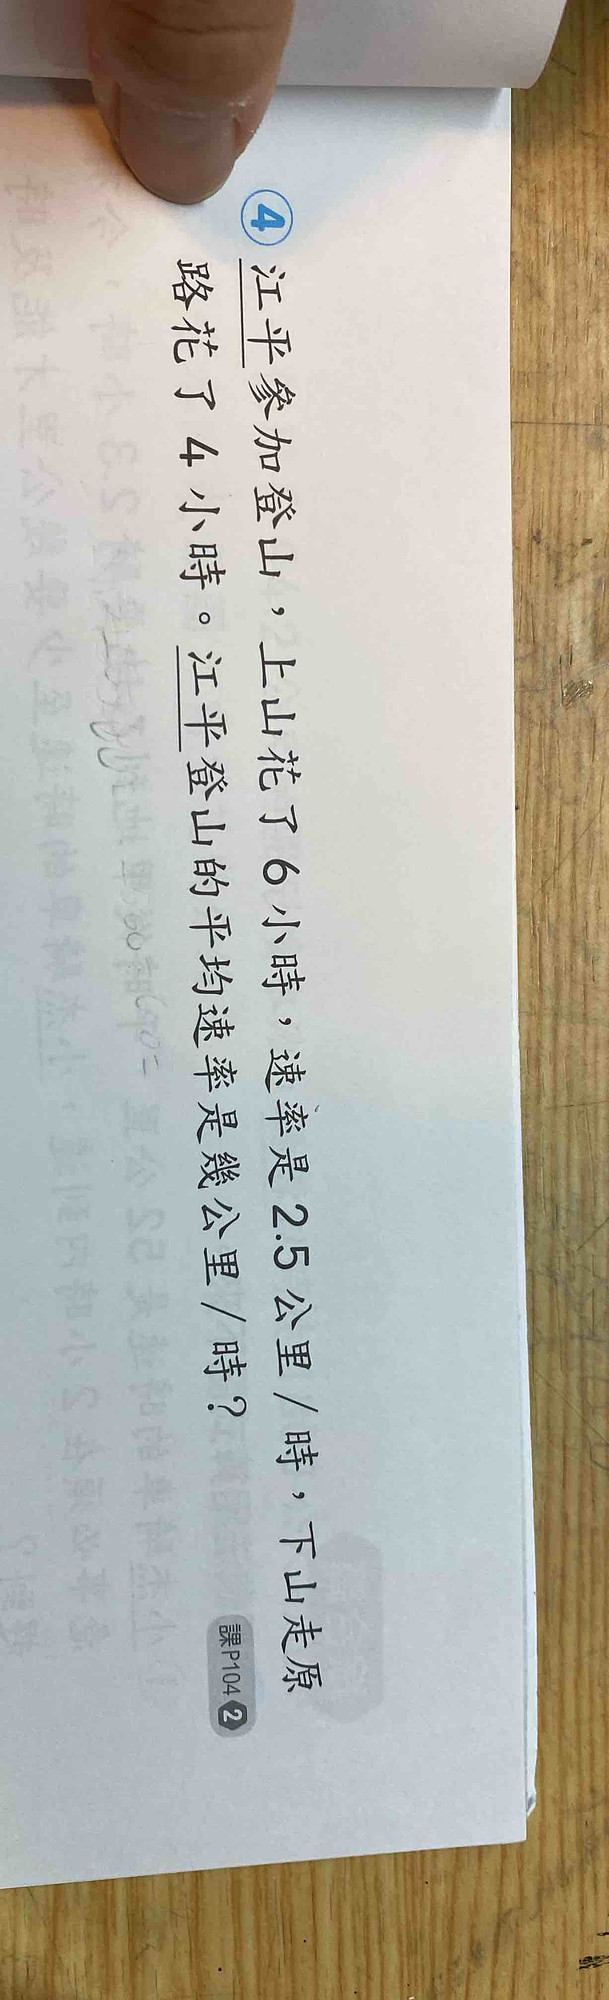 ④ 江平參加登山，上山花了6小時，速率是2.5公里/時，下山走原
路花了4小時。江平登山的平均速率是幾公里/時？
課P104 2